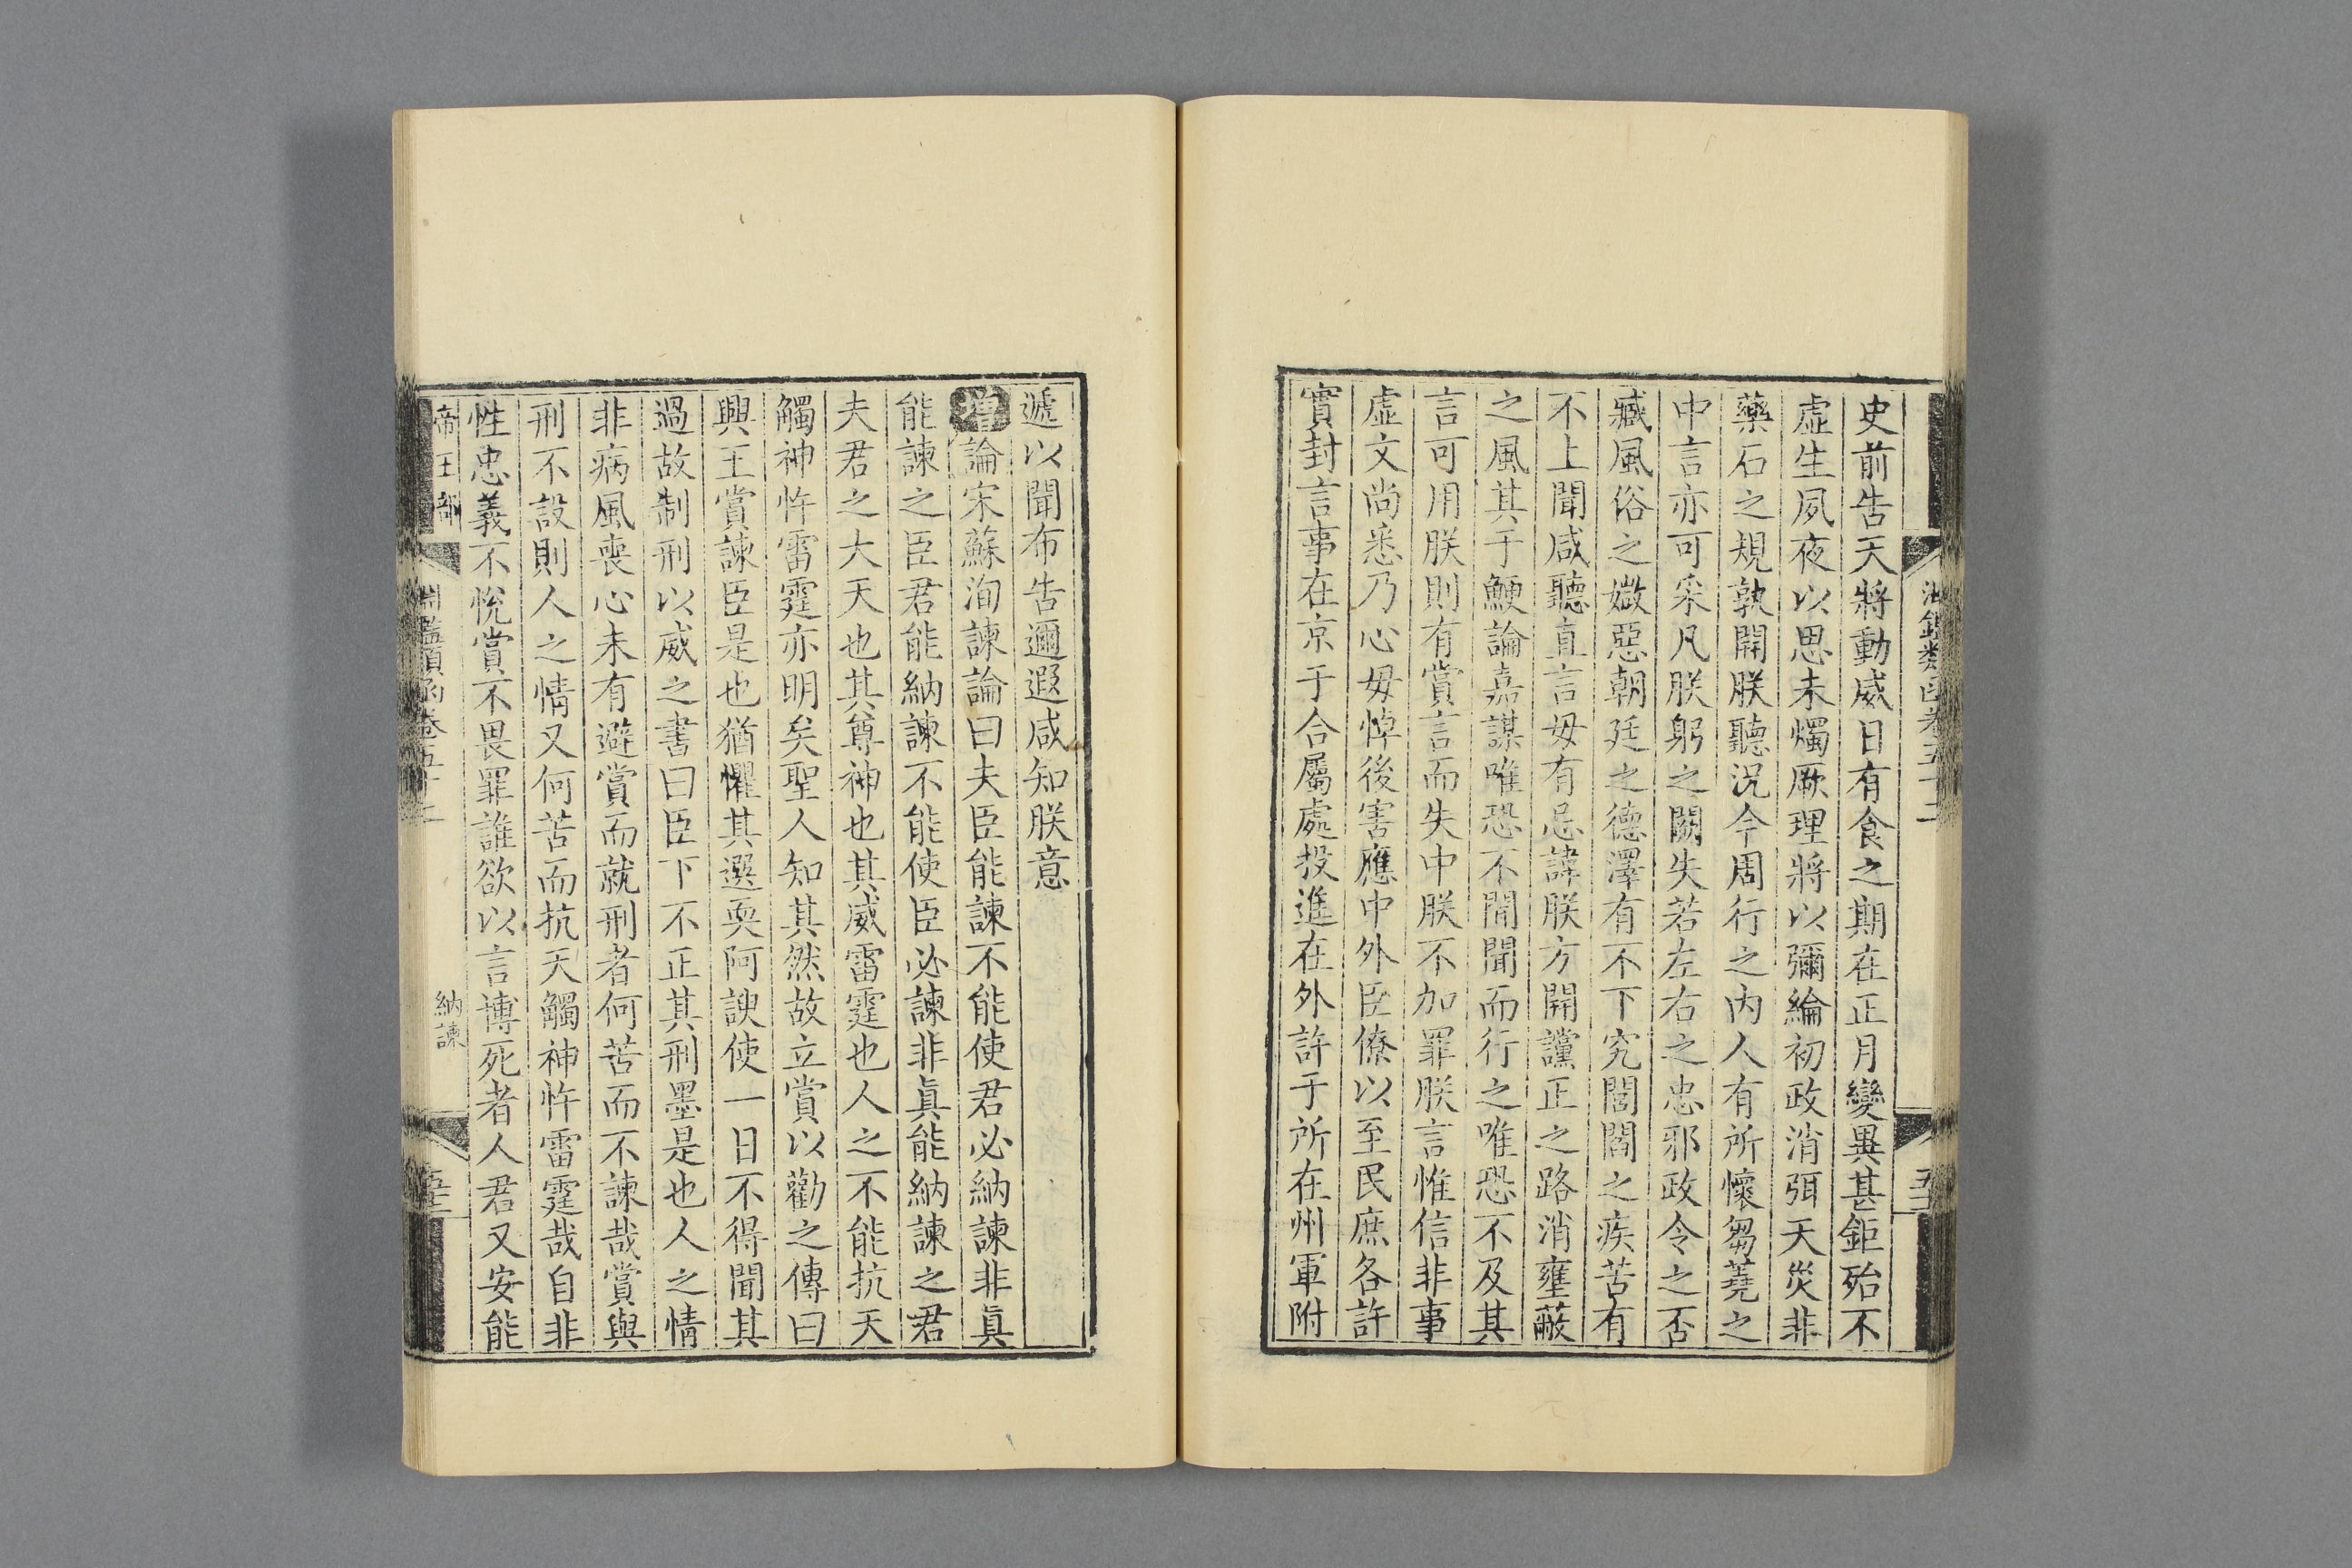 淵鑑類函卷五十二
史前告天將動威日有食之期在正月變異甚鉅殆不
虛生夙夜以思未燭厥理將以彌綸初政消弭天災非
藥石之規孰開朕聽況今周行之內人有所懷芻蕘之
中言亦可采凡朕躬之闕失若左右之忠邪政令之否
臧風俗之媺惡朝廷之德澤有不下究閭閻之疾苦有
不上聞咸聽直言毋有忌諱朕方開讜正之路消壅蔽
之風其于鯁論嘉謀唯恐不聞聞而行之唯恐不及其
言可用朕則有賞言而失中朕不加罪朕言惟信非事
虛文尚悉乃心毋悼後害應中外臣僚以至民庶各許
實封言事在京于合屬處投進在外許于所在州軍附
遞以聞布告邇遐咸知朕意
增論宋蘇洵諫論曰夫臣能諫不能使君必納諫非眞
能諫之臣君能納諫不能使臣必諫非眞能納諫之君
夫君之大天也其尊神也其威雷霆也人之不能抗天
觸神忤雷霆亦明矣聖人知其然故立賞以勸之傳曰
興王賞諫臣是也猶懼其選耎阿諛使一日不得聞其
過故制刑以威之書曰臣下不正其刑墨是也人之情
非病風喪心未有避賞而就刑者何苦而不諫哉賞與
刑不設則人之情又何苦而抗天觸神忤雷霆哉自非
性忠義不悅賞不畏罪誰欲以言博死者人君又安能
帝王部
淵鑑類函卷五十二
納諫